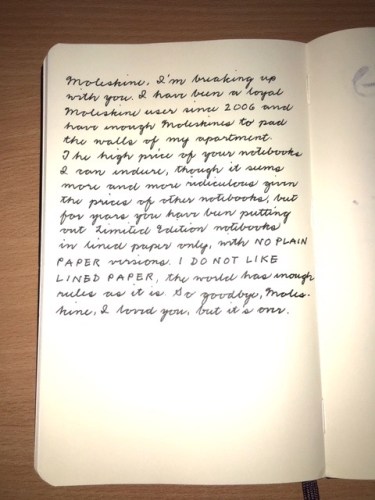 Moleskine, I'm breaking up
with you. I have been a loyal
Moleskine user since 2006 and
have enough Moleskines to pad
the walls of my apartment.
The high price of your notebooks
I can endure, though it seems
more and more ridiculous given
the prices of other notebooks, but
for years you have been putting
out Limited Edition notebooks
in lined paper only, with NO PLAIN
PAPER versions. I DO NOT LIKE
LINED PAPER, the world has enough
rules as it is. So goodbye, Moles-
kine, I loved you, but it's over.